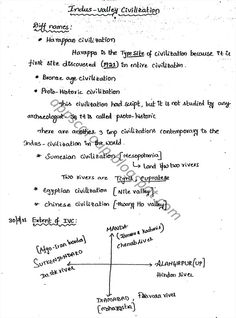 Indus-valley Civilization
Diff names:
• Harappan civilization
Harappa is the Type Site of civilization because it is
first site discovered [1921] in entire civilization.
• Bronze age civilization
• Proto-Historic civilization
This civilization had script, but it is not studied by any
archaeologist. So it is called proto-historic
There are another 3 imp civilizations contemporary to the
Indus-civilization in the world.
• Sumerian civilization [Mesopotamia]
Land b/w two rivers
Two rivers are Tigris, Euprates
• Egyptian civilization [Nile valley]
• Chinese civilization [Hwang Ho valley]
Extent of IVC:
MANDA
[Jammu & Kashmir]
Chenab river
[Afgn-Iran border]
SUTKAGENDOR
ALAMGIRPUR (UP)
Hindon river
DIAMABAD,
[Maharashtra]
Pravara river